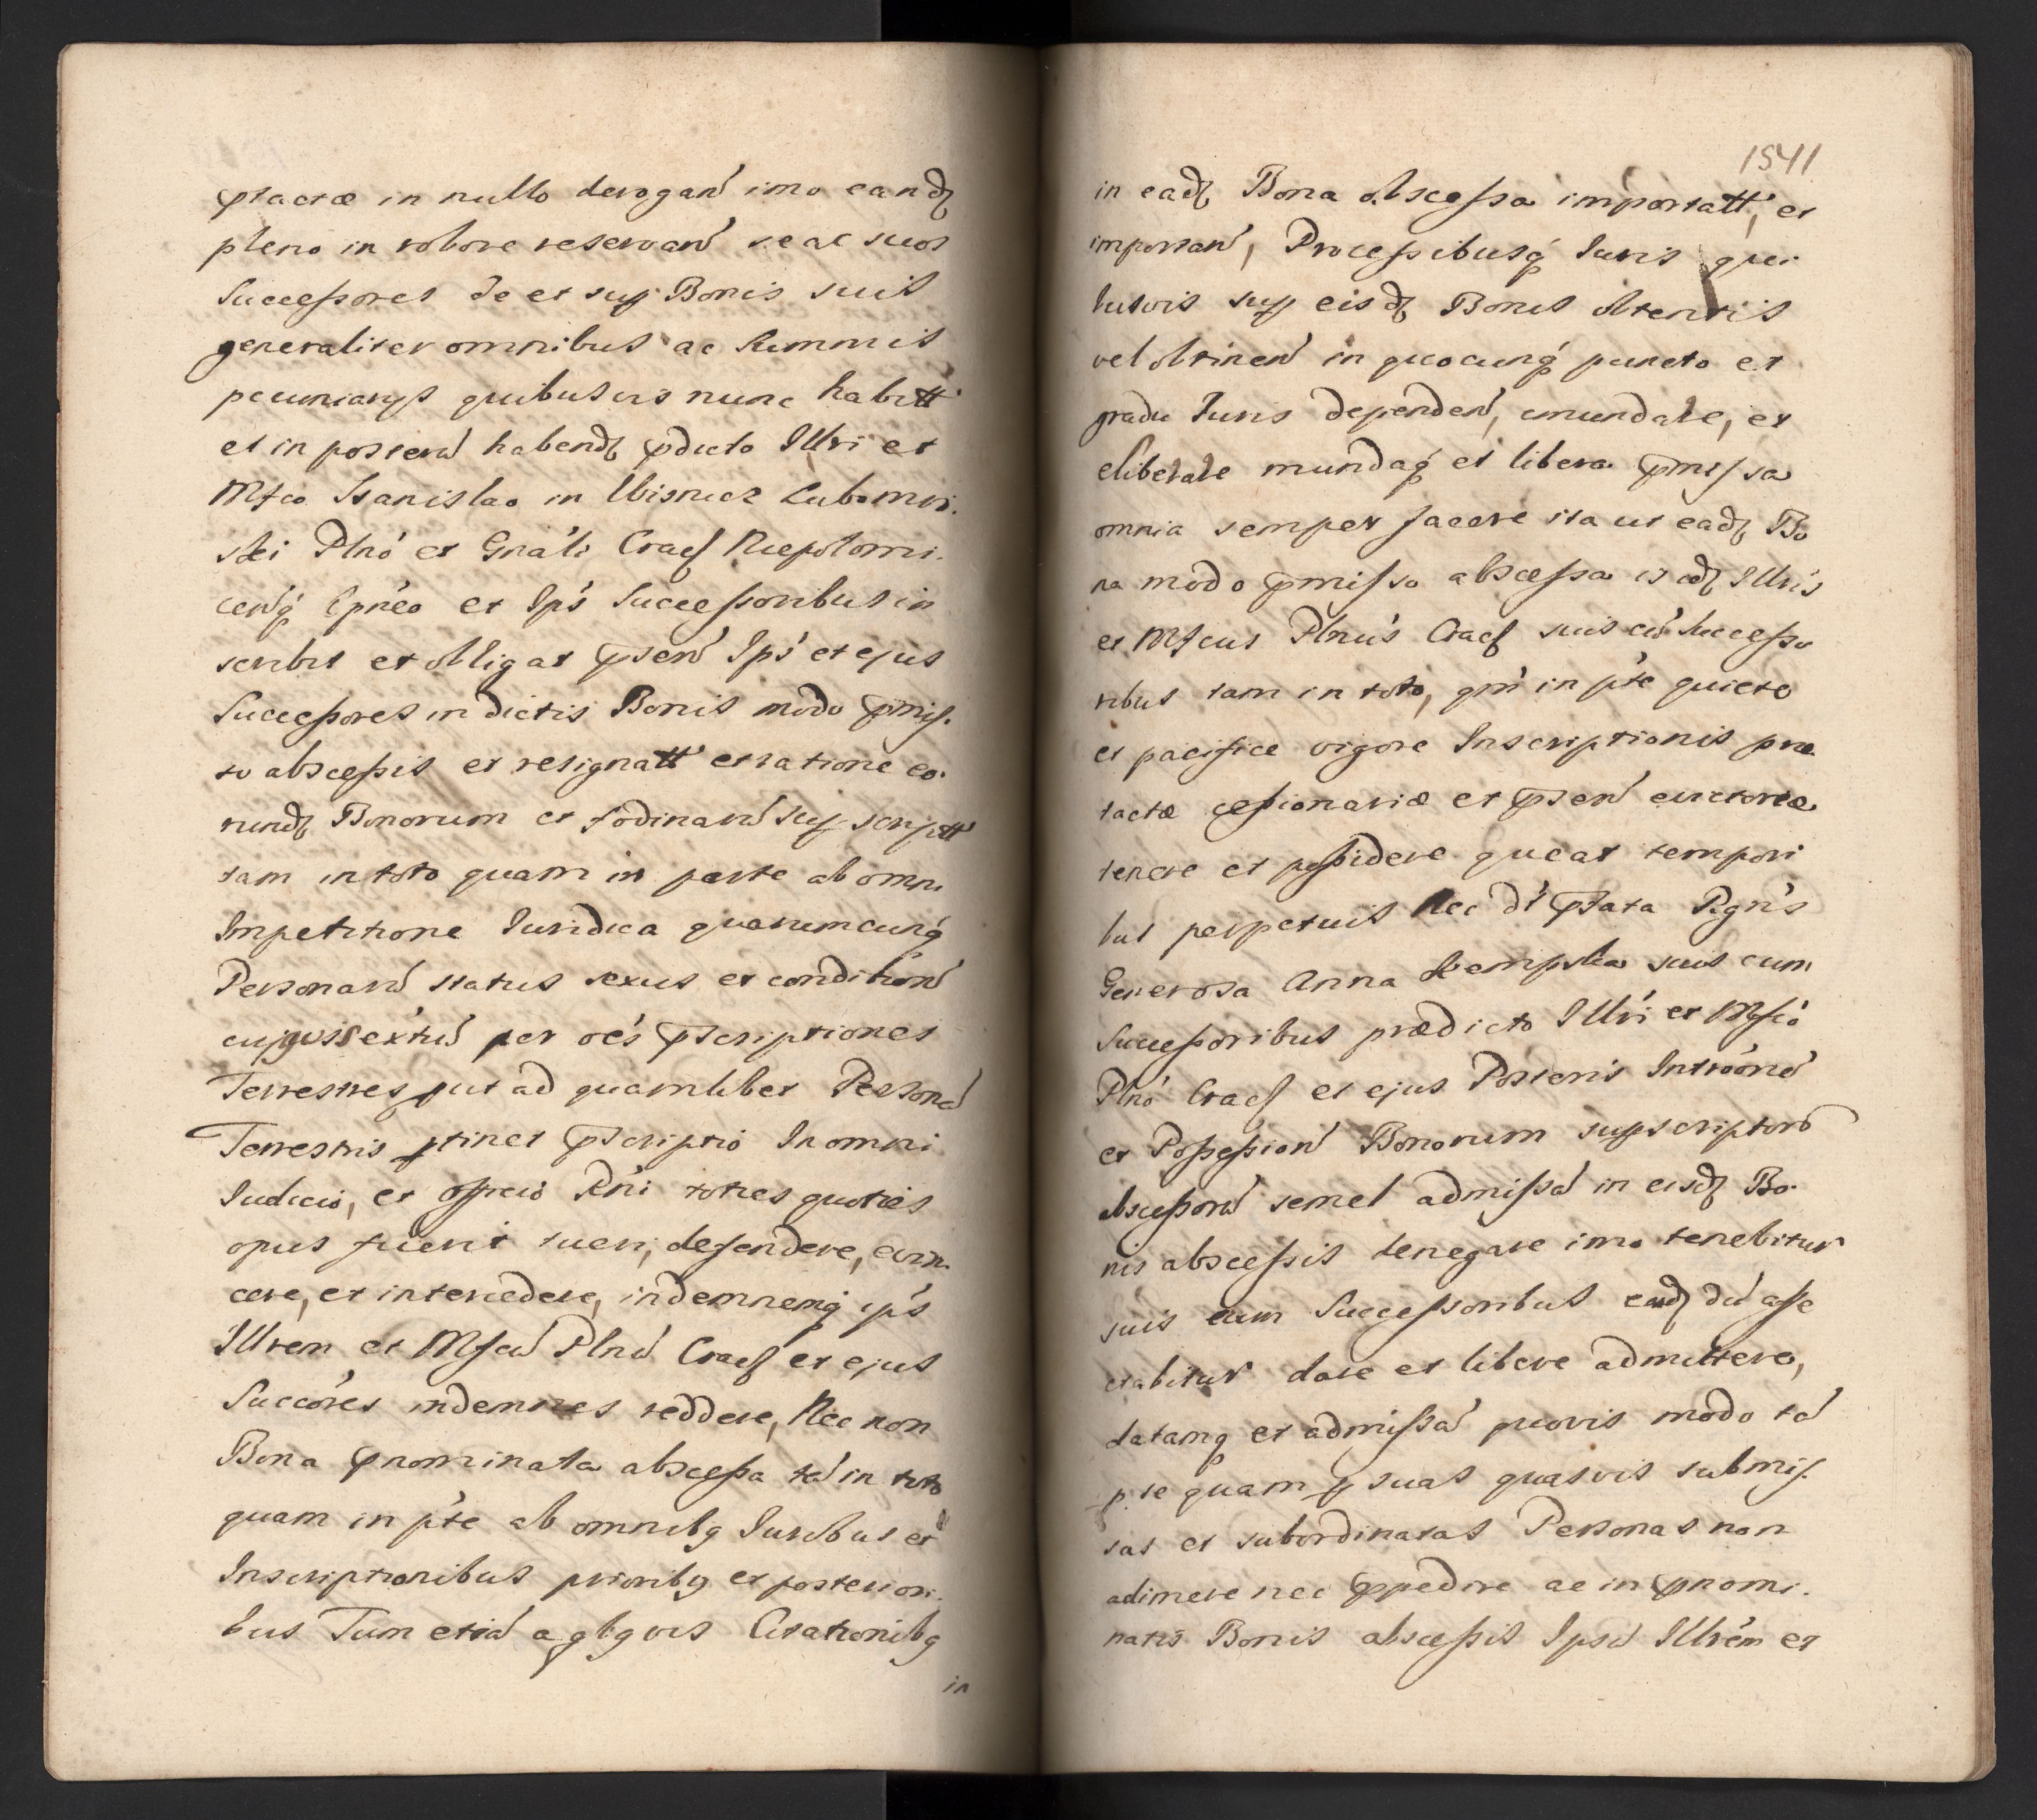 ptactæ in nullo derogań imo eandꝫ
pleno in robore reservań se ac suos
Successores de et sup Bonis suis
generaliter omnibus ac summis
pecuniarys quibusvis nunc habitt
et in posterū habendꝫ pdicto Illri et
Mfco Stanislao in Wisnicz Lubomir
ski Plnó et Gnáli Cracꝭ Niepolomi
ceńq̨ Cpńeo et Ips Successoribus in
scribit et obligat pseń Ips et ejus
Successores in dictis Bonis modo pmis
so abscessis et resignatt et ratione eo
rundꝫ Bonorum et fodinarū sup scriptt
tam in toto quam in parte ab omni
Impetitione Juridica quarumcunq̨
Personarū status sexus et conditionū
cujusvis extū per oés pscriptiones
Terrestres put ad quamlibet Personā
Terrestris ptinet pscriptio In omni
Judicio, et officio Rńi toties quoties
opus fuerit tueri, defendere, evin
cere, et intercedere, indemnemq̨ ips
Illrem et Mfcū Plnū Cracꝭ et ejus
Succóres indemnes reddere, Nec non
Bona pnominata abscessa tā in toto
quam in pte ab omnibꝫ Juribus et
Inscriptionibus prioribꝫ et posteriori
bus Tum etiā a qbꝫvis Citationibꝫ
in
1541
in eadꝫ Bona abscessa importatt, et
importań, Processibusq̨ Juris qui
busvis sup eisdꝫ Bonis obtentis
vel obtineń in quocunq̨ puncto et
gradu Juris dependeń, emundare, et
eliberare mundaq̨ et libera pmissa
omnia semper facere ita ut eadꝫ Bo
na modo pmisso abscessa is edꝫ Illris
et Mfcus Plnus Cracꝭ suis cū Successo
ribus tam in toto, qm in pte quiete
et pacifice vigore Inscriptionis præ
tactæ cessionariæ et pseń evictoriæ
tenere et possidere queat tempori
bus perpetuis Nec dt pfata Rgńs
Generosa Anna Kempska suis cum
Successoribus prædicto Illri et Mfcó
Plnó Cracꝭ et ejus Posteris Intróonē
et Possessionē Bonorum supscriptorō
abscessorū semel admissā in eisdꝫ Bo
nis abscessis denegare imo tenebitur
suis cum Successoribus eandꝫ dū affe
ctabitur dare et libere admittere,
datamq̨ et admissā quovis modo tā
p se quam p suas quasvis submis
sas et subordinatas Personas non
adimere nec ppedire ac in pnomi
natis Bonis abscessis Ipsū Illrém et